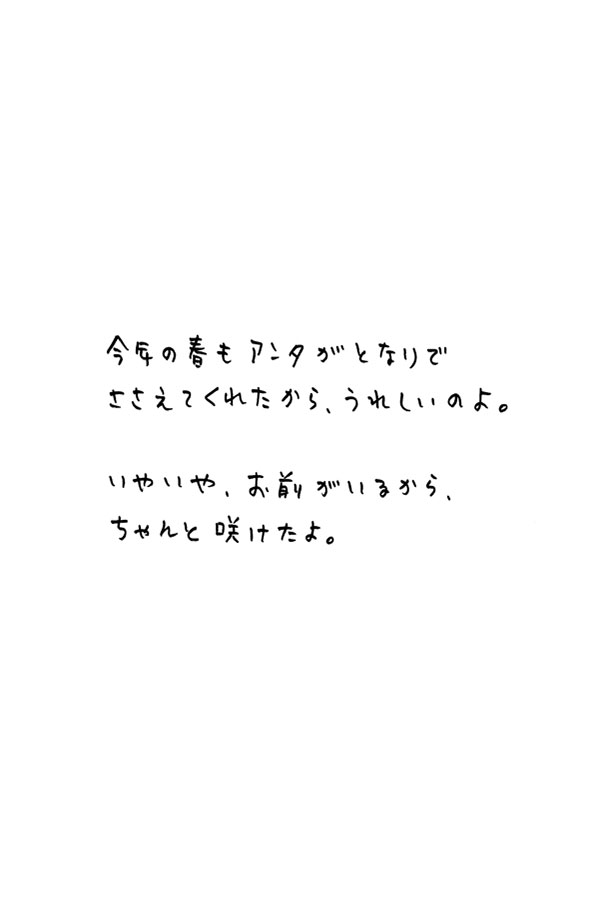 今年の春もアンタがとなりで
ささえてくれたから、うれしいのよ。
いやいや、お前がいるから、
ちゃんと咲けたよ。